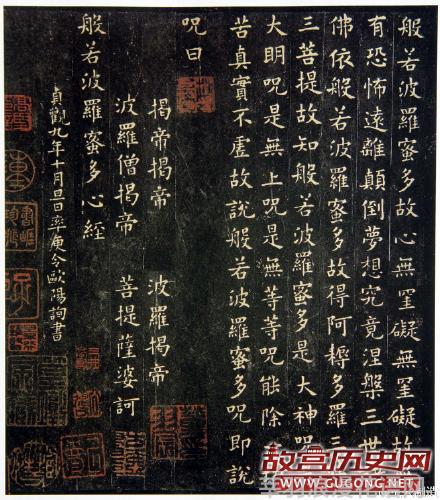 般若波羅蜜多故心無罣礙無罣礙故
有恐怖遠離顛倒夢想究竟涅槃三世
佛依般若波羅蜜多故得阿耨多羅三
三菩提故知般若波羅蜜多是大神呪
大明呪是無上呪是無等等呪能除
苦真實不虛故說般若波羅蜜多呪即說
呪曰
揭帝揭帝 波羅揭帝
波羅僧揭帝 菩提薩婆訶
般若波羅蜜多心經
貞觀九年十月旦日率更令歐陽詢書
故宫历史网
www.GUGONG.NET